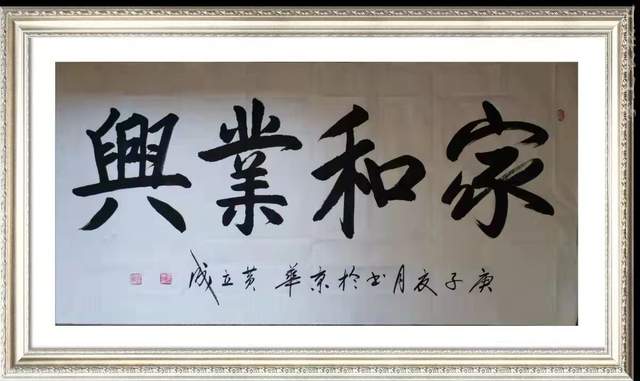 家和業興
庚子夏月书於京華 黄立成